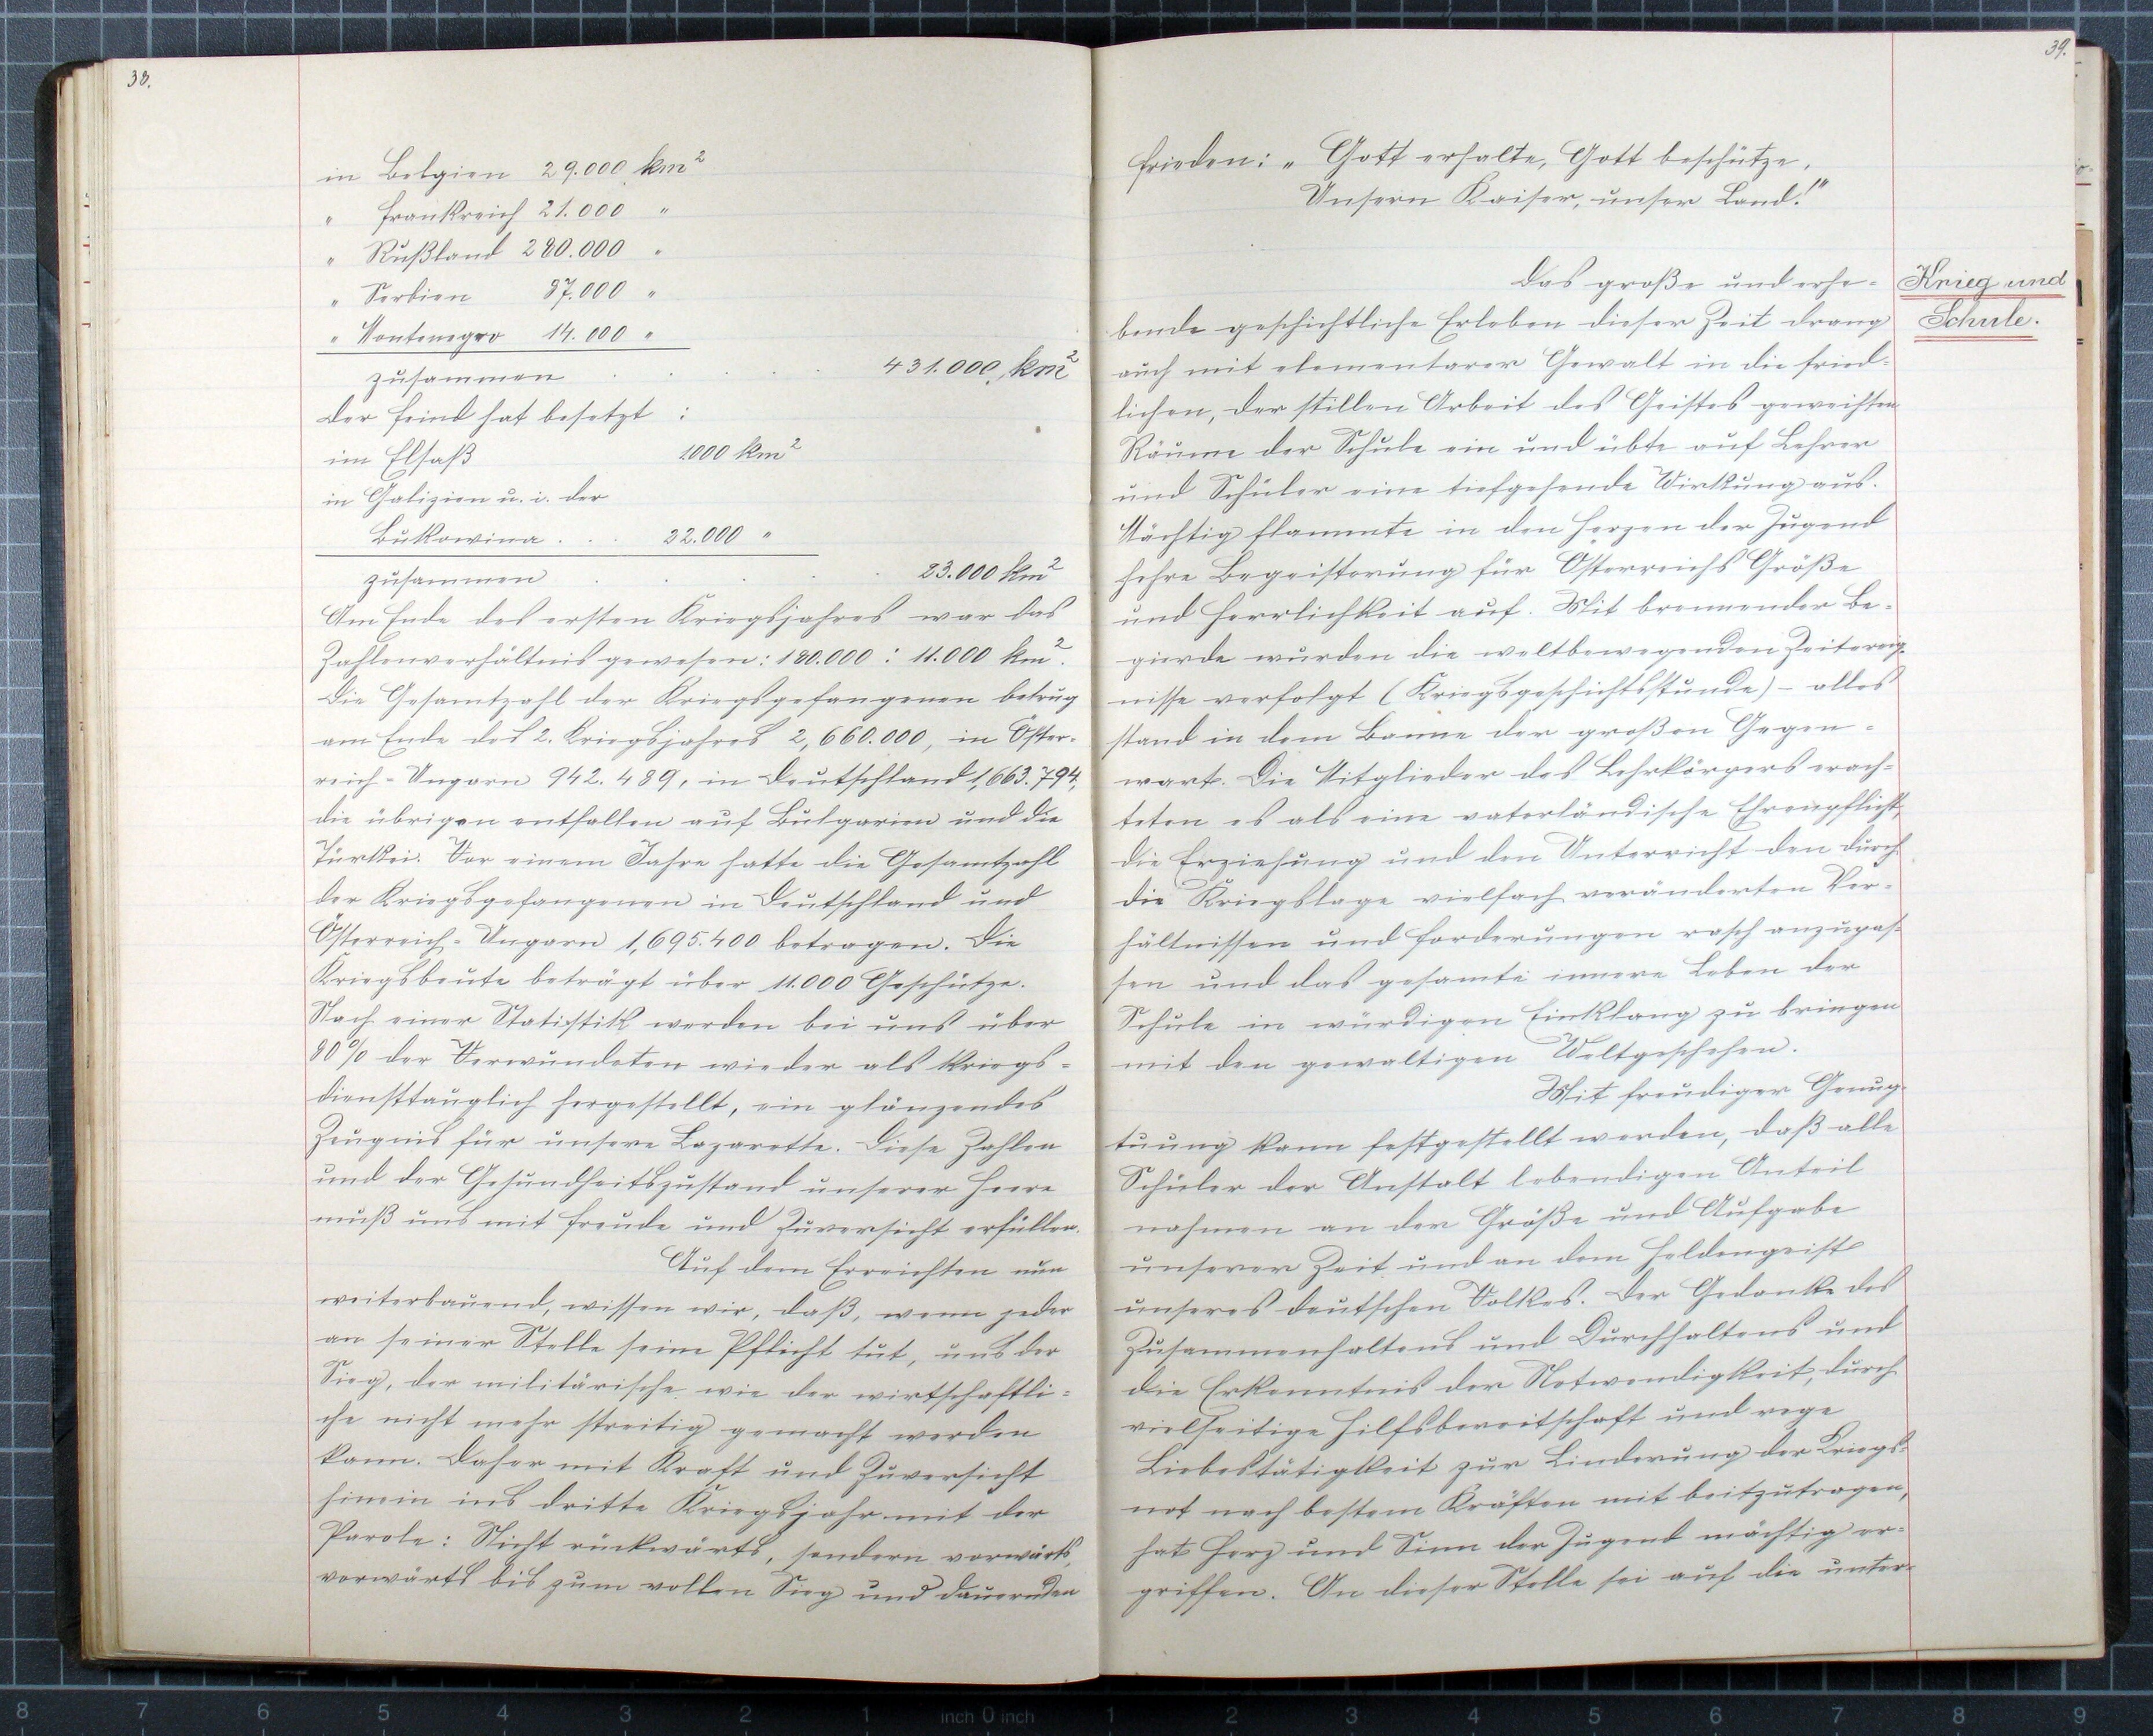 38.
in Belgien 29.000 km²
" Frankreich 21.000 "
" Rußland 280.000 "
" Serbien 87.000 "
" Montenegro 14.000 "
zusammen . . . . . 431.000 km²
Der Feind hat besetzt :
im Elsaß 1000 km²
in Galizien u. i. der
Bukowina . . . 22.000 "
zusammen . . . . . 23.000 km²
Am Ende des ersten Kriegsjahres war das
Zahlenverhältnis gewesen: 180.000 : 11.000 km².
Die Gesamtzahl der Kriegsgefangenen betrug
am Ende des 2. Kriegsjahres 2,660.000, in Öster-
reich-Ungarn 942.489, in Deutschland 1,663.794,
die übrigen entfallen auf Bulgarien und die
Türkei. Vor einem Jahre hatte die Gesamtzahl
der Kriegsgefangenen in Deutschland und
Österreich-Ungarn 1,695.400 betragen. Die
Kriegsbeute beträgt über 11.000 Geschütze.
Nach einer Statistik werden bei uns über
80% der Verwundeten wieder als kriegs-
diensttauglich hergestellt, ein glänzendes
Zeugnis für unsere Lazarette. Diese Zahlen
und der Gesundheitszustand unserer Heere
muß uns mit Freude und Zuversicht erfüllen.
Auf dem Erreichten nun
weiterbauend, wissen wir, daß, wenn jeder
an seiner Stelle seine Pflicht tut, uns der
Sieg, der militärische wie der wirtschaftli-
che nicht mehr streitig gemacht werden
kann. Daher mit Kraft und Zuversicht
hinein ins dritte Kriegsjahr mit der
Parole: Nicht rückwärts, sondern vorwärts,
vorwärts bis zum vollen Sieg und dauernden
39.
Frieden: „ Gott erhalte, Gott beschütze,
Unsern Kaiser, unser Land!"
Krieg und
Schule.
Das große und erhe-
bende geschichtliche Erleben dieser Zeit drang
auch mit elementarer Gewalt in die fried-
lichen, der stillen Arbeit des Geistes geweihten
Räume der Schule ein und übte auf Lehrer
und Schüler eine tiefgehende Wirkung aus.
Mächtig flammte in den Herzen der Jugend
hehre Begeisterung für Österreichs Größe
und Herrlichkeit auf. Mit brennender Be-
gierde wurden die weltbewegenden Zeitereig-
nisse verfolgt (Kriegsgeschichtsstunde) - alles
stand in dem Banne der großen Gegen-
wart. Die Mitglieder des Lehrkörpers erach-
teten es als eine vaterländische Ehrenpflicht,
die Erziehung und den Unterricht den durch
die Kriegslage vielfach veränderten Ver-
hältnissen und Forderungen rasch anzupas-
sen und das gesamte innere Leben der
Schule in würdigen Einklang zu bringen
mit den gewaltigen Weltgeschehen.
Mit freudiger Genug-
tuung kann festgestellt werden, daß alle
Schüler der Anstalt lebendigen Anteil
nahmen an der Größe und Aufgabe
unserer Zeit und an dem Heldengeist
unseres deutschen Volkes. Der Gedanke des
Zusammenhaltens und Durchhaltens und
die Erkenntnis der Notwendigkeit, durch
vielseitige Hilfsbereitschaft und rege
Liebestätigkeit zur Linderung der Kriegs-
not nach bestem Kräften mit beitzutragen,
hat Herz und Sinn der Jugend mächtig er-
griffen. An dieser Stelle sei auf die unter-
8 7 6 5 4 3 2 1 inch 0 inch 1 2 3 4 5 6 7 8 9